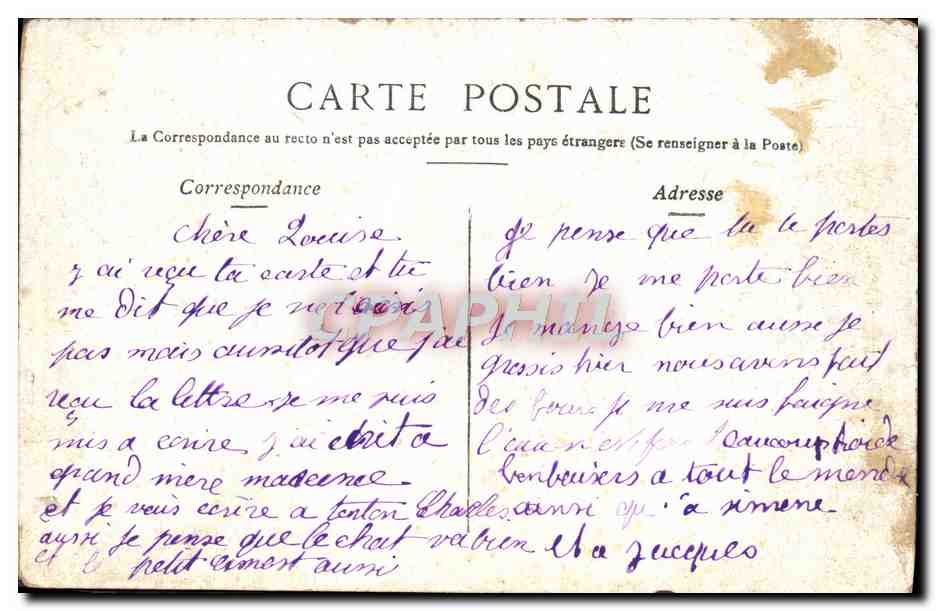 CARTE POSTALE
La Correspondance au recto n'est pas acceptée par tous les pays étrangers (Se renseigner à la Poste)
Correspondance
chère Louise
j ai reçu ta carte et tu
me dit que je ne t'
pas mais aussitot que j'ai
reçu la lettre je me suis
mis a ecrire j'ai ecrit a
grand mère
et je vais ecrire a tonton Charles
aussi je pense que le chat va bien
et le petit aussi
Adresse
Je pense que tu te portes
bien je me porte bien
Je mange bien aussi je
grossis hier nous avons fait
des je me suis baigné
l'eau n'est pas beaucoup froide
bon baisers a tout le monde
ainsi qu'a simone
et a jacques
CPAPHIL